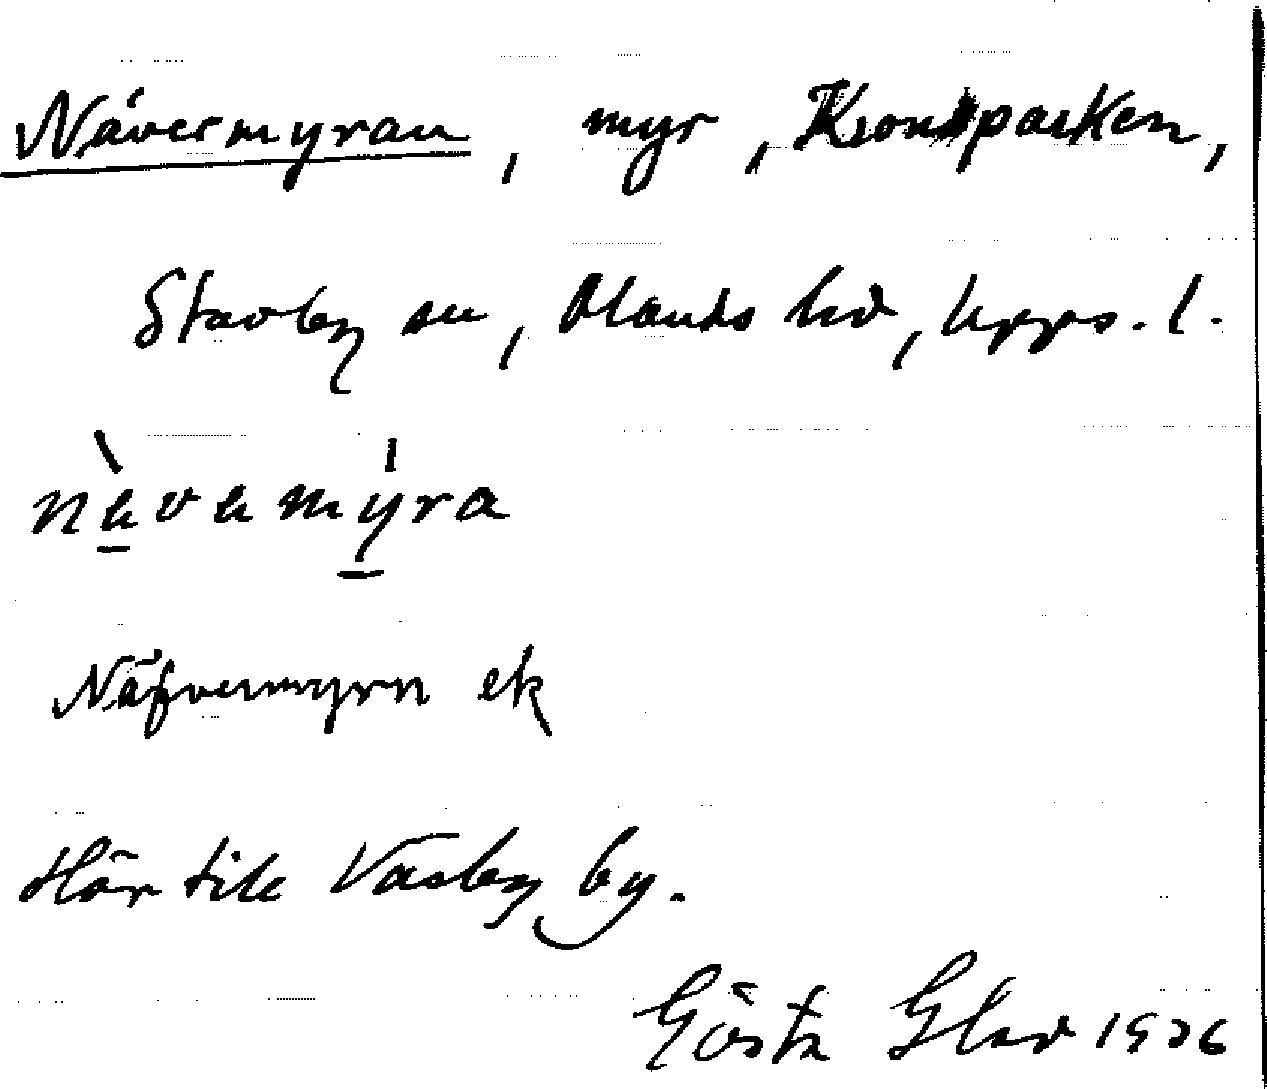 Nävermyran, myr, Kronparken,
Stavby sn, Olands hd, Upps. l.
nävamýra
Näfvermyrn ek
Hör till Vasby by.
Gösta Glad 1936